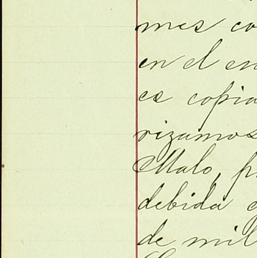 mes co
en el en
es copia
rizamos
Malo, p
debida
de mil